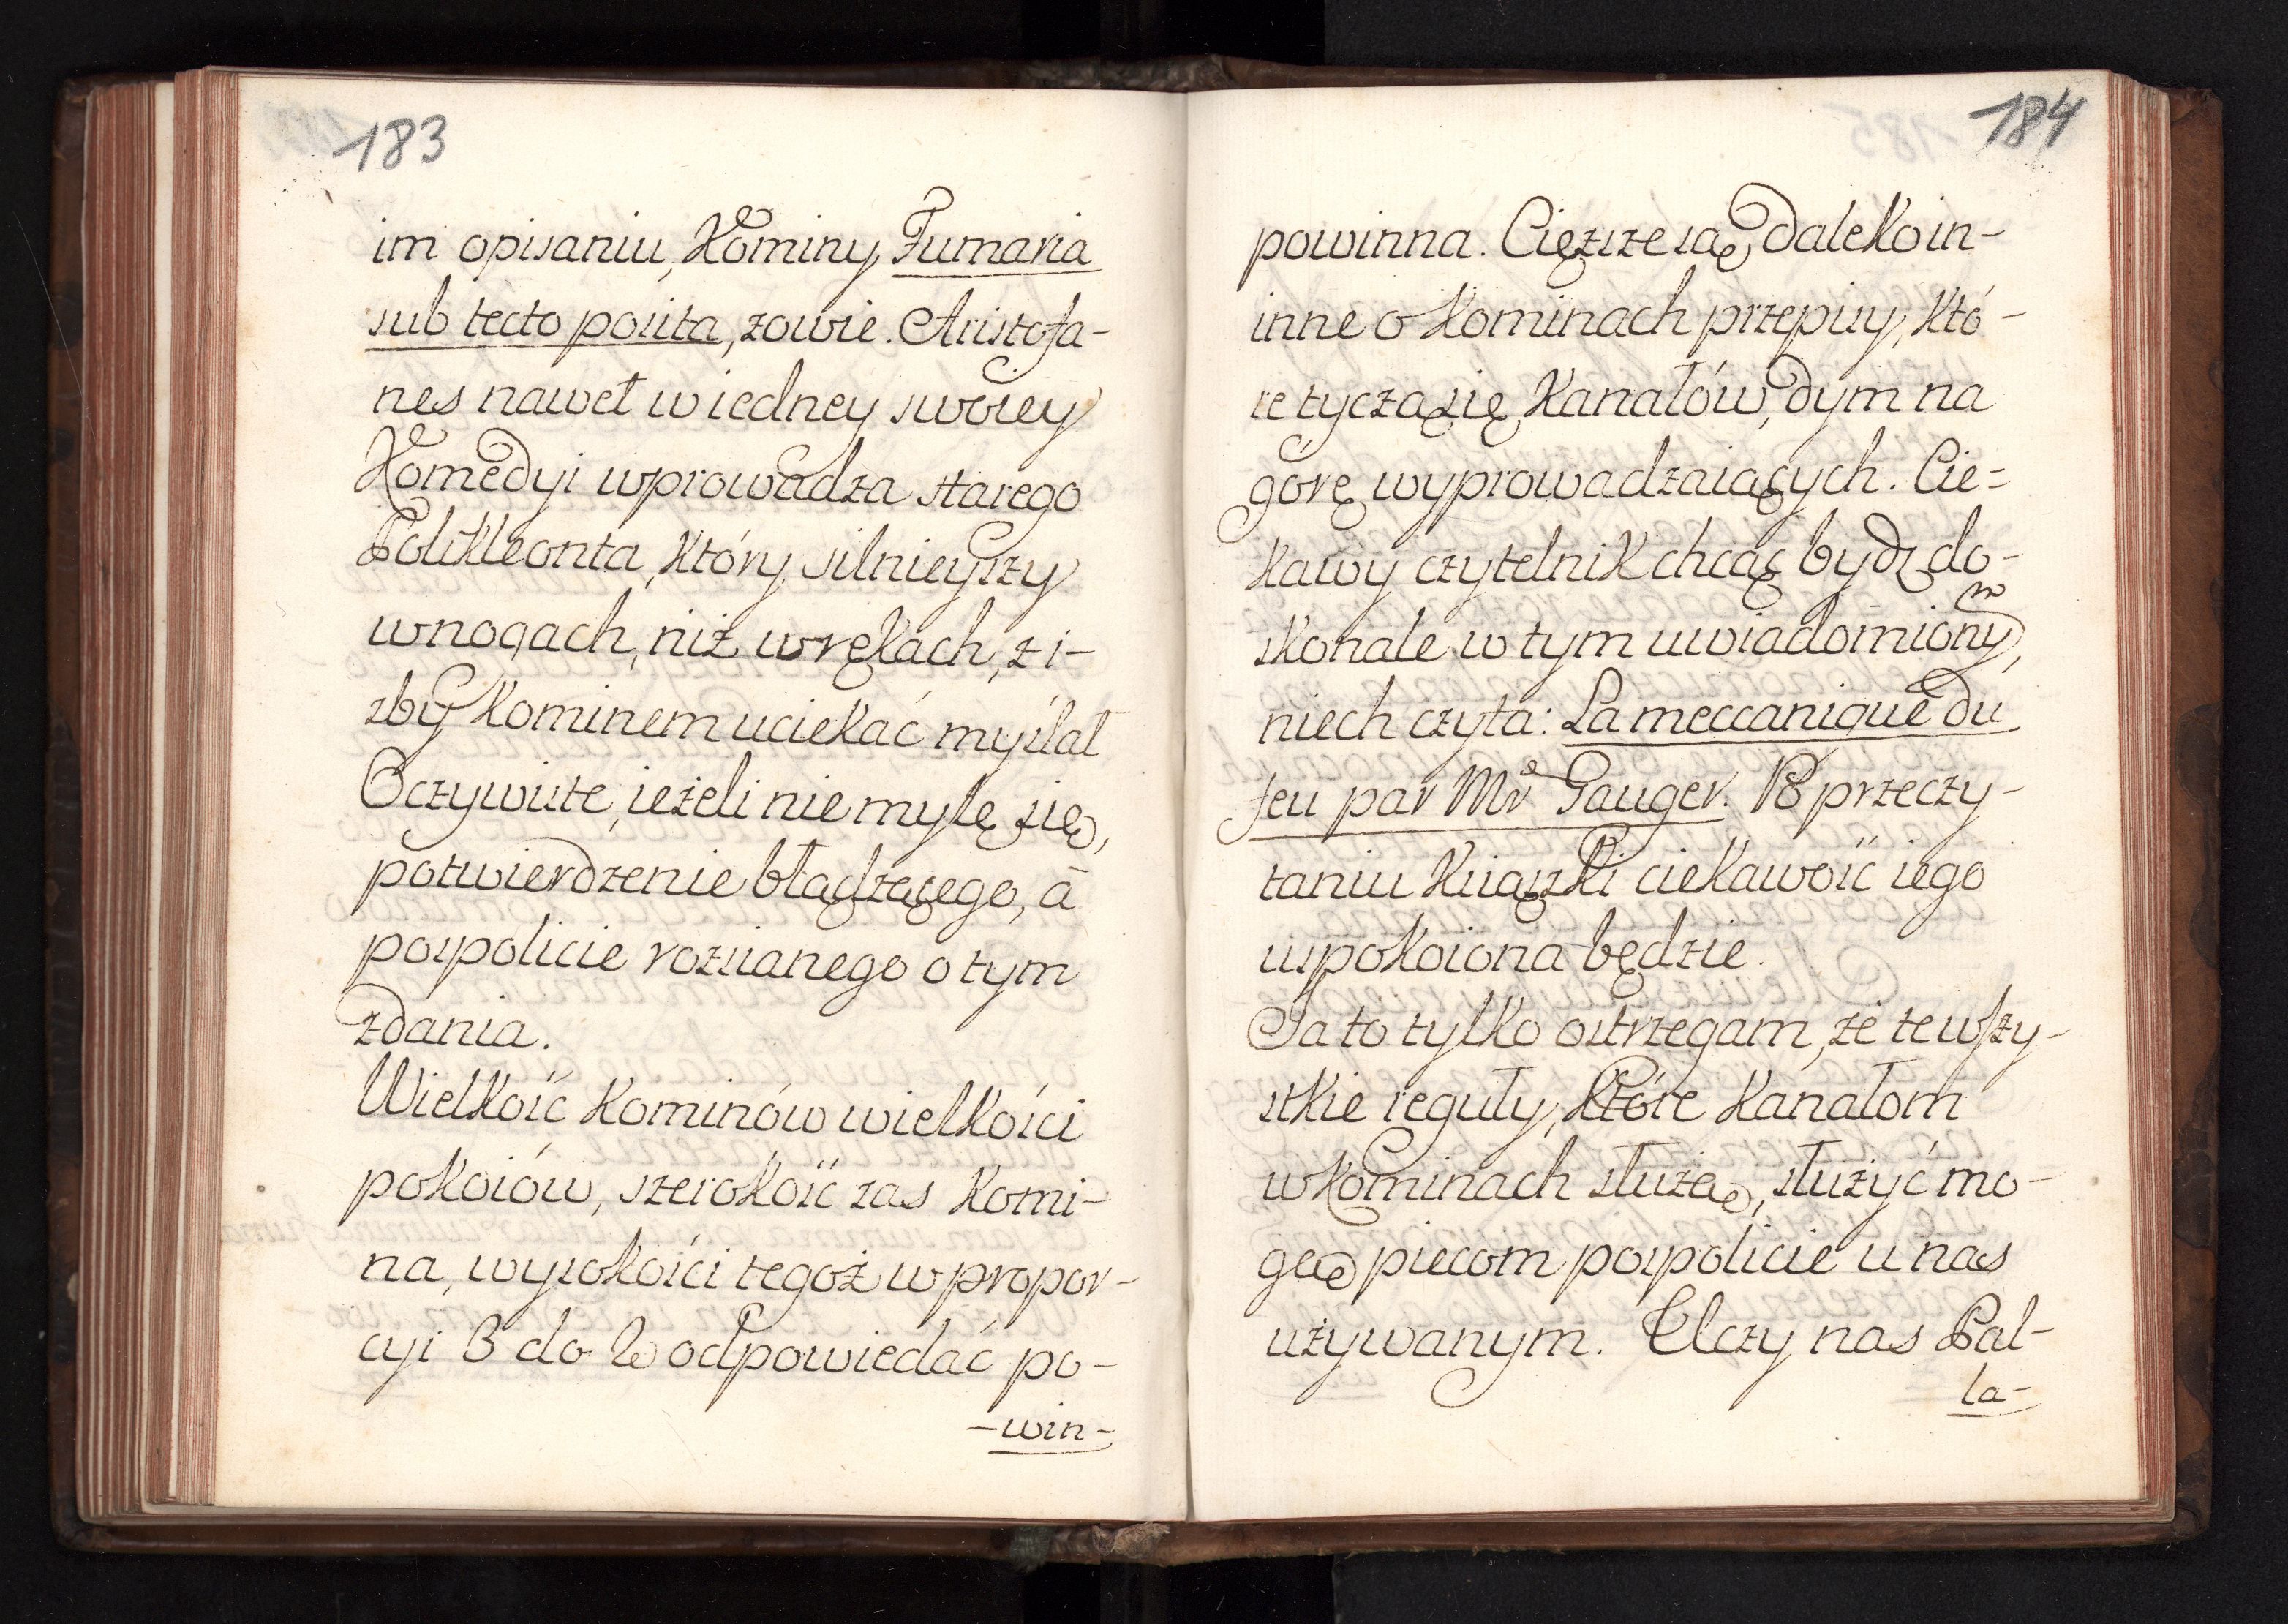 183
im opisaniu, Kominy Fumaria
sub tecto posita, zowie. Aristofa-
nes nawet w iedney swoiey
Komedyi wprowadza starego
Polikleonta, który silnieyszy
w nogach, niż w rękach, z i-
zby kominem uciekać myślał
Oczywiste, ieżeli nie mylę się,
potwierdzenie błądzącego, à
pospolicie rozsianego o tym
zdania.
Wielkość Kominów wielkości
pokoiów, szerokość zas Komi-
na, wysokości tegoż w propor-
cyi 3 do 2 odpowiedać po-
-win-
184
powinna. Cięższe są daleko in-
inne o Kominach przepisy, któ-
re tyczą się Kanałów, dym na
górę wyprowadzaiących. Cie-
kawy czytelnik chcąc bydz do-
skonale w tym uwiadomiony,
niech czyta: La meccanique du
feu par Mr Gauger. Po przeczy-
taniu Ksiąszki ciekawość iego
uspokoiona będzie.
Ja to tylko ostrzegam, że te wszy-
stkie reguły, które Kanałom
w Kominach służą, służyć mo-
gą piecom pospolicie u nas
używanym. Uczy nas Pal-
la-